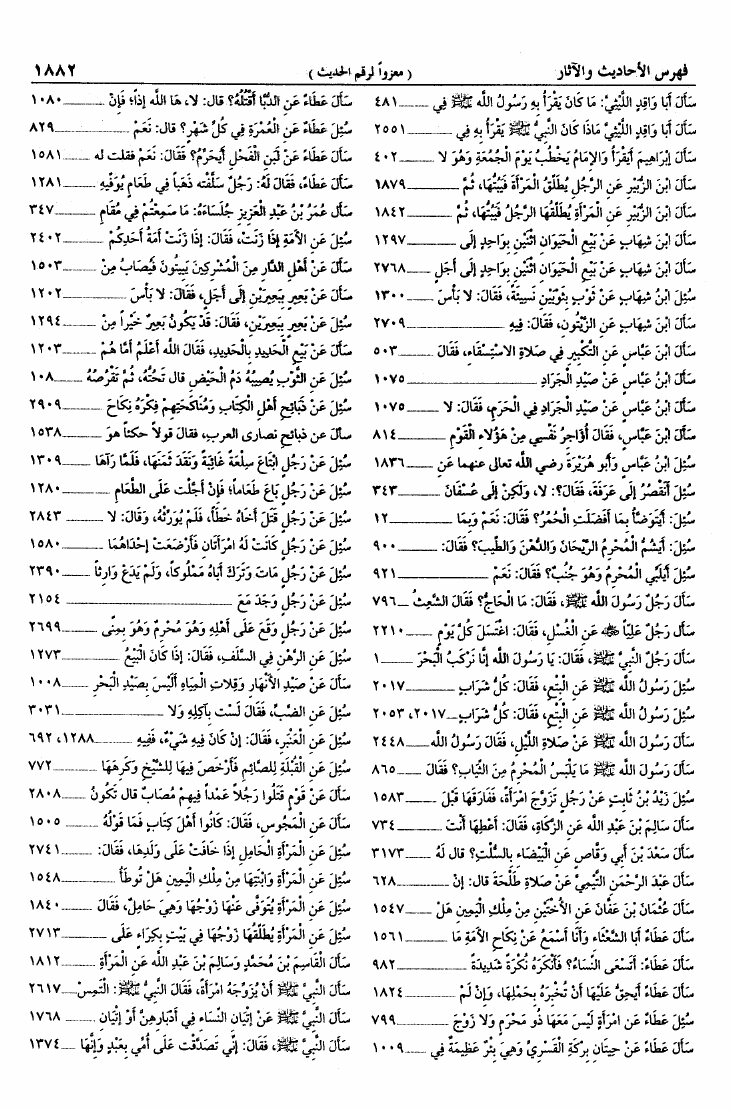 فهرس الأحاديث والآثار
( معزواً لرقم الحديث )
١٨٨٢
سَأَلَ أَبَا وَاقِدٍ اللَّيْثِيَّ: مَا كَانَ يَقْرَأُ بِهِ رَسُولُ الله ﷺ فِي ٤٨١
سَأَلَ أَبَا وَاقِدٍ اللَّيْثِيَّ مَاذَا كَانَ النَّبِيُّ ﷺ يَقْرَأُ بِهِ فِي ٢٥٥١
سَأَلَ إِبْرَاهِيمَ أَيَقْرَأُ وَالإِمَامُ يَخْطُبُ يَوْمَ الْجُمُعَةِ وَهُوَ لا ٤٠٢
سَأَلَ ابنَ الزُّبَيْرِ عَنِ الرَّجُلِ يُطَلِّقُ الْمَرْأَةَ فَيَبُتُّهَا، ثُمَّ ١٨٧٩
سَأَلَ ابنَ الزُّبَيْرِ عَنِ الْمَرْأَةِ يُطَلِّقُهَا الرَّجُلُ فَيَبُتُّهَا، ثُمَّ ١٨٤٢
سَأَلَ ابْنَ شِهَابٍ عَنْ بَيْعِ الْحَيَوَانِ اثْنَيْنِ بِوَاحِدٍ إِلَى ١٢٩٧
سَأَلَ ابْنَ شِهَابٍ عَنْ بَيْعِ الْحَيَوَانِ اثْنَيْنِ بِوَاحِدٍ إِلَى أَجَلٍ ٢٧٦٨
سُئِلَ ابْنُ شِهَابٍ عَنْ ثَوْبٍ بِثَوْبَيْنِ نَسِيئَةً، فَقَالَ: لا بَأْسَ ١٣٠٠
سَأَلَ ابْنَ شِهَابٍ عَنِ الزَّيْتُونِ، فَقَالَ: فِيهِ ٢٧٠٩
سَأَلَ ابْنَ عَبَّاسٍ عَنِ التَّكْبِيرِ فِي صَلاةِ الاسْتِسْقَاءِ، فَقَالَ ٥٠٣
سَأَلَ ابْنَ عَبَّاسٍ عَنْ صَيْدِ الْجَرَادِ ١٠٧٥
سَأَلَ ابْنَ عَبَّاسٍ عَنْ صَيْدِ الْجَرَادِ فِي الْحَرَمِ، فَقَالَ: لا ١٠٧٥
سَأَلَ ابْنَ عَبَّاسٍ، فَقَالَ أُؤَاجِرُ نَفْسِي مِنْ هَؤُلاءِ الْقَوْمِ ٨١٤
سُئِلَ ابْنُ عَبَّاسٍ وَأَبُو هُرَيْرَةَ رضي الله تعالى عنهما عَنِ ١٨٣٦
سُئِلَ أَنَقْصُرُ إِلَى عَرَفَةَ، فَقَالَ؟: لا، وَلَكِنْ إِلَى عُسْفَانَ ٣٤٣
سُئِلَ: أَيَتَوَضَّأُ بِمَا أَفْضَلَتِ الْحُمُرُ؟ فَقَالَ: نَعَمْ وَبِمَا ١٢
سُئِلَ: أَيَشُمُّ الْمُحْرِمُ الرَّيْحَانَ وَالدُّهْنَ وَالطِّيبَ؟ فَقَالَ: ٩٠٠
سُئِلَ أَيُلَبِّي الْمُحْرِمُ وَهُوَ جُنُبٌ؟ فَقَالَ: نَعَمْ ٩٢١
سَأَلَ رَجُلٌ رَسُولَ الله ﷺ، فَقَالَ: مَا الْحَاجُّ؟ فَقَالَ الشَّعِثُ ٧٩٦
سَأَلَ رَجُلٌ عَلِيّاً عَنِ الْغُسْلِ، فَقَالَ: اغْتَسِلْ كُلَّ يَوْمٍ ٢٢١٠
سَأَلَ رَجُلٌ النَّبِيَّ ﷺ، فَقَالَ: يَا رَسُولَ الله إِنَّا نَرْكَبُ الْبَحْرَ ١
سُئِلَ رَسُولُ الله ﷺ عَنِ الْبِتْعِ، فَقَالَ: كُلُّ شَرَابٍ ٢٠١٧
سُئِلَ رَسُولُ الله ﷺ عَنِ الْبِتْعِ، فَقَالَ: كُلُّ شَرَابٍ ٢٠١٧، ٢٠٥٣
سَأَلَ رَسُولَ الله ﷺ عَنْ صَلاةِ اللَّيْلِ، فَقَالَ رَسُولُ الله ٢٤٤٨
سَأَلَ رَسُولَ الله ﷺ مَا يَلْبَسُ الْمُحْرِمُ مِنَ الثِّيَابِ؟ فَقَالَ ٨٦٥
سُئِلَ زَيْدُ بْنُ ثَابِتٍ عَنْ رَجُلٍ تَزَوَّجَ امْرَأَةً، فَفَارَقَهَا قَبْلَ ١٥٨٣
سَأَلَ سَالِمَ بْنَ عَبْدِ الله عَنِ الزَّكَاةِ، فَقَالَ: أَعْطِهَا أَنْتَ ٧٣٤
سَأَلَ سَعْدَ بْنَ أَبِي وَقَّاصٍ عَنِ الْبَيْضَاءِ بِالسُّلْتِ؟ قال لَهُ ٣١٧٣
سَأَلَ عَبْدَ الرَّحْمَنِ التَّيْمِيَّ عَنْ صَلاةِ طَلْحَةَ قال: إِنْ ٦٢٨
سَأَلَ عُثْمَانَ بْنَ عَفَّانَ عَنِ الأُخْتَيْنِ مِنْ مِلْكِ الْيَمِينِ هَلْ ١٥٤٧
سَأَلَ عَطَاءٌ أَبَا الشَّعْثَاءِ وَأَنَا أَسْمَعُ عَنْ نِكَاحِ الأَمَةِ مَا ١٥٦١
سَأَلَ عَطَاءً: أَتَسْعَى النِّسَاءُ؟ فَأَنْكَرَهُ نُكْرَةً شَدِيدَةً ٩٨٢
سَأَلَ عَطَاءً أَيَحِقُّ عَلَيْهَا أَنْ تُخْبِرَهُ بِحَمْلِهَا، وَإِنْ لَمْ ١٨٢٤
سُئِلَ عَطَاءٌ عَنِ امْرَأَةٍ لَيْسَ مَعَهَا ذُو مَحْرَمٍ وَلا زَوْجَ ٧٩٩
سَأَلَ عَطَاءً عَنْ حِيتَانِ بِرْكَةِ الْقَسْرِيِّ وَهِيَ بِئْرٌ عَظِيمَةٌ فِي ١٠٠٩
سَأَلَ عَطَاءً عَنِ الدُّبَّا أَقْتُلُهُ؟ قال: لا، هَا الله إِذاً؛ فَإِنْ ١٠٨٠
سُئِلَ عَطَاءٌ عَنِ الْعُمْرَةِ فِي كُلِّ شَهْرٍ؟ قال: نَعَمْ ٨٢٩
سَأَلَ عَطَاءً عَنْ لَبَنِ الْفَحْلِ أَيُحَرِّمُ؟ فَقَالَ: نَعَمْ فقلت له ١٥٨١
سَأَلَ عَطَاءً، فَقَالَ لَهُ: رَجُلٌ سَلَّفْتُه ذَهَباً فِي طَعَامٍ يُوَفِّيهِ ١٢٨١
سَأَلَ عُمَرُ بْنُ عَبْدِ الْعَزِيزِ جُلَسَاءَهُ: مَا سَمِعْتُمْ فِي مُقَامِ ٣٤٧
سُئِلَ عَنِ الأَمَةِ إِذَا زَنَتْ، فَقَالَ: إِذَا زَنَتْ أَمَةُ أَحَدِكُمْ ٢٤٠٢
سَأَلَ عَنْ أَهْلِ الدَّارِ مِنَ الْمُشْرِكِينَ يَبِيتُونَ فَيُصَابُ مِنْ ١٥٠٣
سَأَلَ عَنْ بَعِيرٍ بِبَعِيرَيْنِ إِلَى أَجَلٍ، فَقَالَ: لا بَأْسَ ١٢٠٢
سُئِلَ عَنْ بَعِيرٍ بِبَعِيرَيْنِ، فَقَالَ: قَدْ يَكُونُ بَعِيرٌ خَيْراً مِنْ ١٢٩٤
سَأَلَ عَنْ بَيْعِ الْحَدِيدِ بِالْحَدِيدِ، فَقَالَ الله أَعْلَمُ أَمَّا هُمْ ١٢٠٣
سُئِلَ عَنِ الثَّوْبِ يُصِيبُهُ دَمُ الْحَيْضِ قال تَحُتُّهُ، ثُمَّ تَقْرُصُهُ ١٠٨
سُئِلَ عَنْ ذَبَائِحِ أَهْلِ الْكِتَابِ وَمُنَاكَحَتِهِمْ فَكَرِهَ نِكَاحَ ٢٩٠٩
سأل عن ذبائح نصارى العرب، فقال قولاً حكتاً هو ١٥٣٨
سُئِلَ عَنْ رَجُلٍ ابْتَاعَ سِلْعَةً غَائِبَةً وَنَقَدَ ثَمَنَهَا، فَلَمَّا رَآهَا ١٣٠٩
سُئِلَ عَنْ رَجُلٍ بَاعَ طَعَاماً؛ فَإِنْ أَجَّلْتَ عَلَى الطَّعَامِ ١٢٨٠
سُئِلَ عَنْ رَجُلٍ قَتَلَ أَخَاهُ خَطَأً، فَلَمْ يُوَرِّثْهُ، وَقَالَ: لا ٢٨٤٣
سُئِلَ عَنْ رَجُلٍ كَانَتْ لَهُ امْرَأَتَانِ فَأَرْضَعَتْ إِحْدَاهُمَا ١٥٨٠
سُئِلَ عَنْ رَجُلٍ مَاتَ وَتَرَكَ أَبَاهُ مَمْلُوكاً، وَلَمْ يَدَعْ وَارِثاً ٢٣٩٠
سُئِلَ عَنْ رَجُلٍ وَجَدَ مَعَ ٢١٥٤
سُئِلَ عَنْ رَجُلٍ وَقَعَ عَلَى أَهْلِهِ وَهُوَ مُحْرِمٌ وَهُوَ بِمِنًى ٢٦٩٩
سُئِلَ عَنِ الرَّهْنِ فِي السَّلَفِ، فَقَالَ: إِذَا كَانَ الْبَيْعُ ١٢٧٣
سَأَلَ عَنْ صَيْدِ الأَنْهَارِ وَقِلاتِ الْمِيَاهِ أَلَيْسَ بِصَيْدِ الْبَحْرِ ١٠٠٨
سُئِلَ عَنِ الضَّبِّ، فَقَالَ لَسْتُ بِآكِلِهِ وَلا ٣٠٣١
سُئِلَ عَنِ الْعَنْبَرِ، فَقَالَ: إِنْ كَانَ فِيهِ شَيْءٌ، فَفِيهِ ١٢٨٨، ٦٩٢
سُئِلَ عَنِ الْقُبْلَةِ لِلصَّائِمِ فَأَرْخَصَ فِيهَا لِلشَّيْخِ وَكَرِهَهَا ٧٧٢
سَأَلَ عَنْ قَوْمٍ قَتَلُوا رَجُلاً عَمْداً فِيهِمْ مُصَابٌ قال تَكُونُ ٢٨٠٨
سَأَلَ عَنِ الْمَجُوسِ، فَقَالَ: كَانُوا أَهْلَ كِتَابٍ فَمَا قَوْلُهُ ١٥٠٥
سُئِلَ عَنِ الْمَرْأَةِ الْحَامِلِ إِذَا خَافَتْ عَلَى وَلَدِهَا، فَقَالَ: ٢٧٤١
سُئِلَ عَنِ الْمَرْأَةِ وَابْنَتِهَا مِنْ مِلْكِ الْيَمِينِ هَلْ تُوطَأُ ١٥٤٨
سُئِلَ عَنِ الْمَرْأَةِ يُتَوَفَّى عَنْهَا زَوْجُهَا وَهِيَ حَامِلٌ، فَقَالَ ١٨٤٠
سُئِلَ عَنِ الْمَرْأَةِ يُطَلِّقُهَا زَوْجُهَا فِي بَيْتٍ بِكِرَاءٍ عَلَى ٢٧١٣
سَأَلَ الْقَاسِمَ بْنَ مُحَمَّدٍ وَسَالِمَ بْنَ عَبْدِ الله عَنِ الْمَرْأَةِ ١٨١٢
سَأَلَ النَّبِيَّ ﷺ أَنْ يُزَوِّجَهُ امْرَأَةً، فَقَالَ النَّبِيُّ ﷺ: الْتَمِسْ ٢٦١٧
سَأَلَ النَّبِيَّ ﷺ عَنْ إِتْيَانِ النِّسَاءِ فِي أَدْبَارِهِنَّ أَوْ إِتْيَانِ ١٧٦٨
سَأَلَ النَّبِيَّ ﷺ، فَقَالَ: إِنِّي تَصَدَّقْتُ عَلَى أُمِّي بِعَبْدٍ وَإِنَّهَا ١٣٧٤